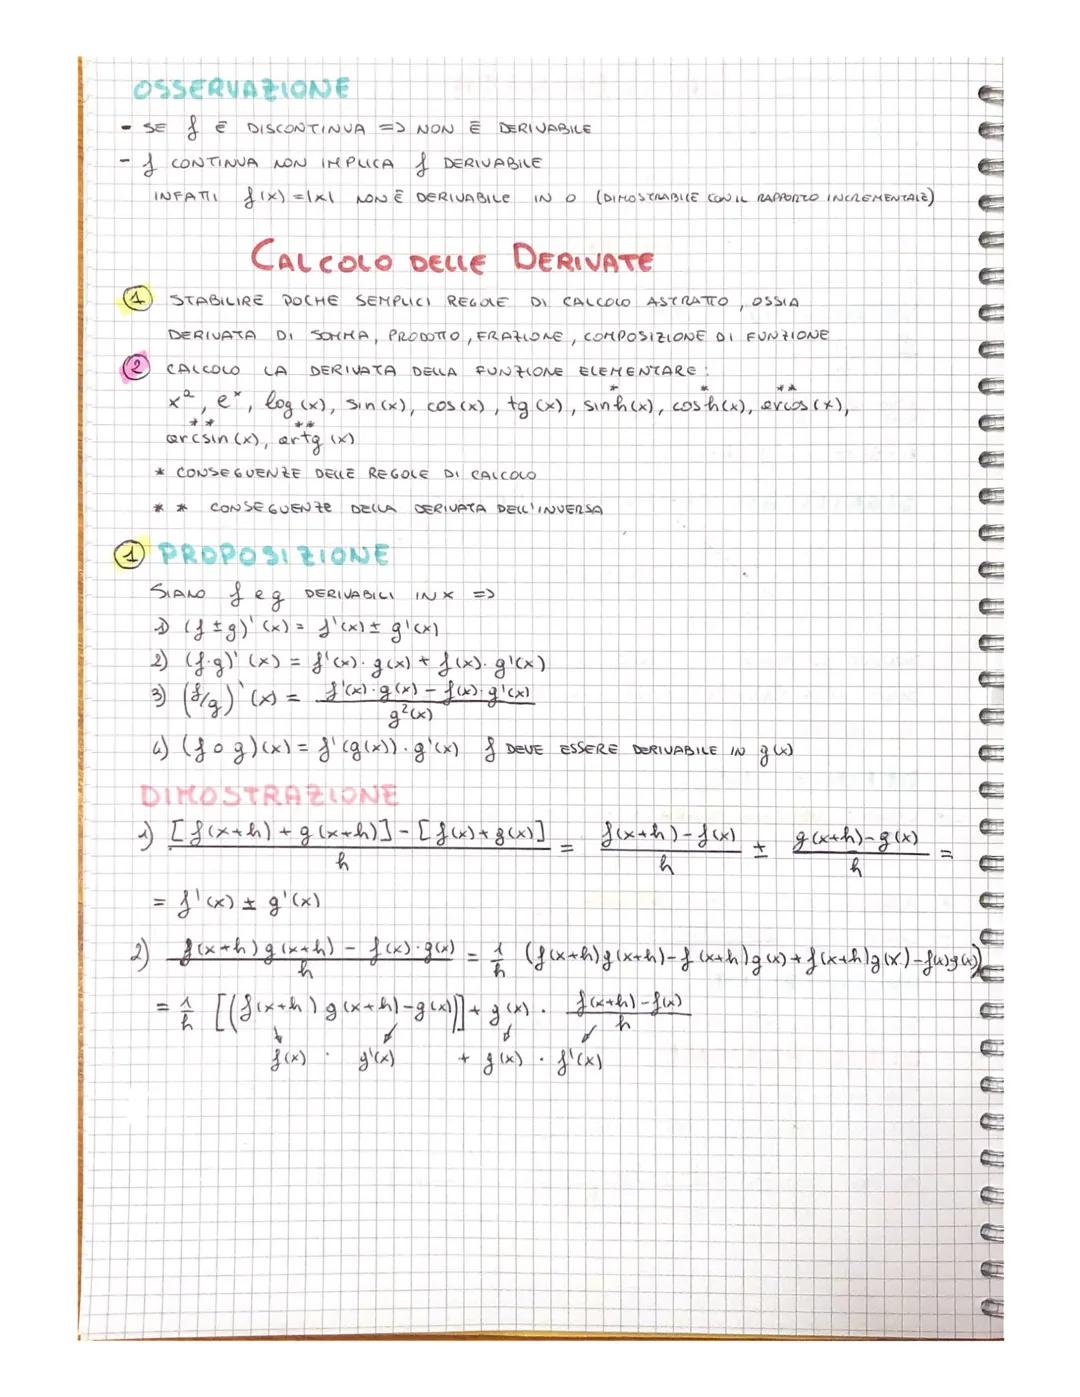 OSSERVAZIONE
- SE f È DISCONTINUA => NON È DERIVABILE
- f CONTINUA NON IMPLICA f DERIVABILE
INFATTI f(x) = |x| NON È DERIVABILE IN 0 (DIMOSTRABILE CON IL RAPPORTO INCREMENTALE)
CALCOLO DELLE DERIVATE
1 STABILIRE POCHE SEMPLICI REGOLE DI CALCOLO ASTRATTO, OSSIA
DERIVATA DI SOMMA, PRODOTTO, FRAZIONE, COMPOSIZIONE DI FUNZIONE
2 CALCOLO LA DERIVATA DELLA FUNZIONE ELEMENTARE:
xᵃ, eˣ, log(x), sin(x), cos(x), tg(x), sinh(x)*, cosh(x)*, arcos(x)**,
arcsin(x)**, artg(x)**
* CONSEGUENZE DELLE REGOLE DI CALCOLO
** CONSEGUENZE DELLA DERIVATA DELL'INVERSA
1 PROPOSIZIONE
SIANO f e g DERIVABILI IN X =>
1) (f ± g)'(x) = f'(x) ± g'(x)
2) (f·g)'(x) = f'(x)·g(x) + f(x)·g'(x)
3) (f/g)'(x) = (f'(x)·g(x) - f(x)·g'(x)) / g²(x)
4) (f∘g)(x) = f'(g(x))·g'(x) f DEVE ESSERE DERIVABILE IN g(x)
DIMOSTRAZIONE
1) ([f(x+h) + g(x+h)] - [f(x) + g(x)]) / h = (f(x+h) - f(x)) / h ± (g(x+h) - g(x)) / h =
= f'(x) ± g'(x)
2) (f(x+h)g(x+h) - f(x)·g(x)) / h = 1/h (f(x+h)g(x+h) - f(x+h)g(x) + f(x+h)g(x) - f(x)g(x))
= 1/h [(f(x+h)g(x+h) - g(x))] + g(x) · (f(x+h) - f(x)) / h
f(x) · g'(x) + g(x) · f'(x)